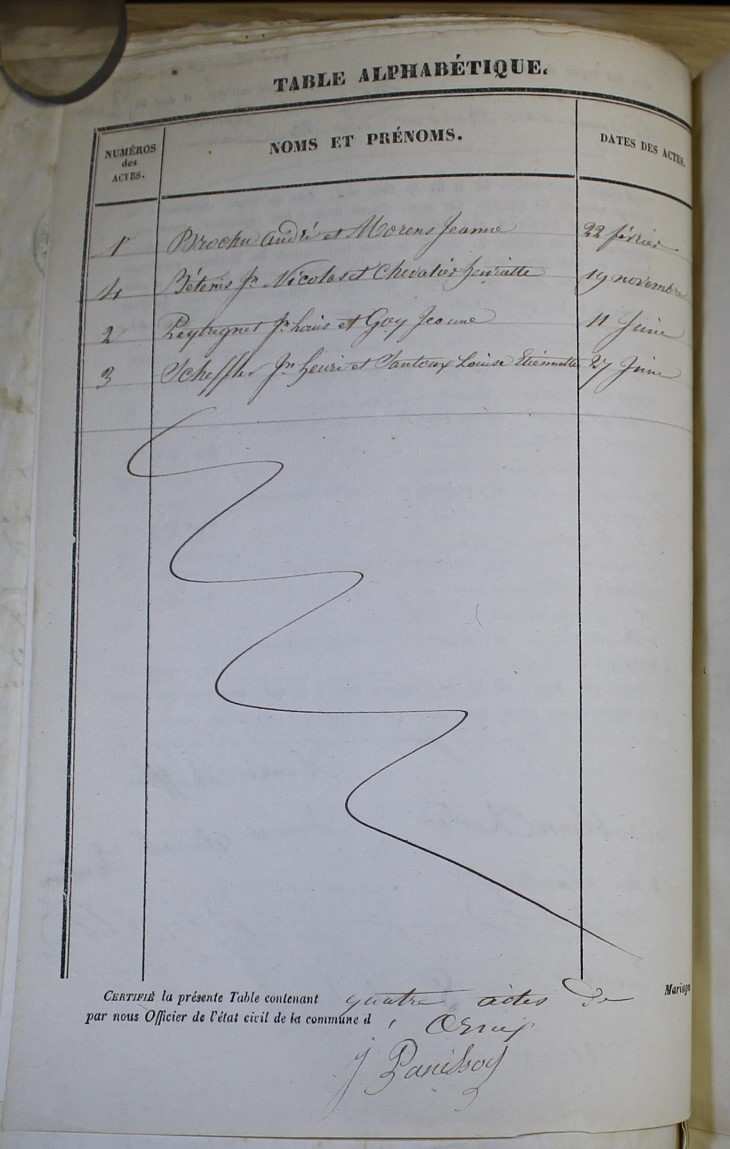 TABLE ALPHABÉTIQUE.
NUMÉROS des ACTES. NOMS ET PRÉNOMS. DATES DES ACTES.
1 André et Morens Jeanne 22 février
4 Bétems Je. Nicolas et Chevalier henriette 19 novembre
2 Jh. Louis et Goy Jeanne 11 Juin
3 Scheffler Jn. henri et Louise Etiennette 27 Juin
CERTIFIÉ la présente Table contenant quatre actes de Mariage
par nous Officier de l'état civil de la commune d'
J Panissod